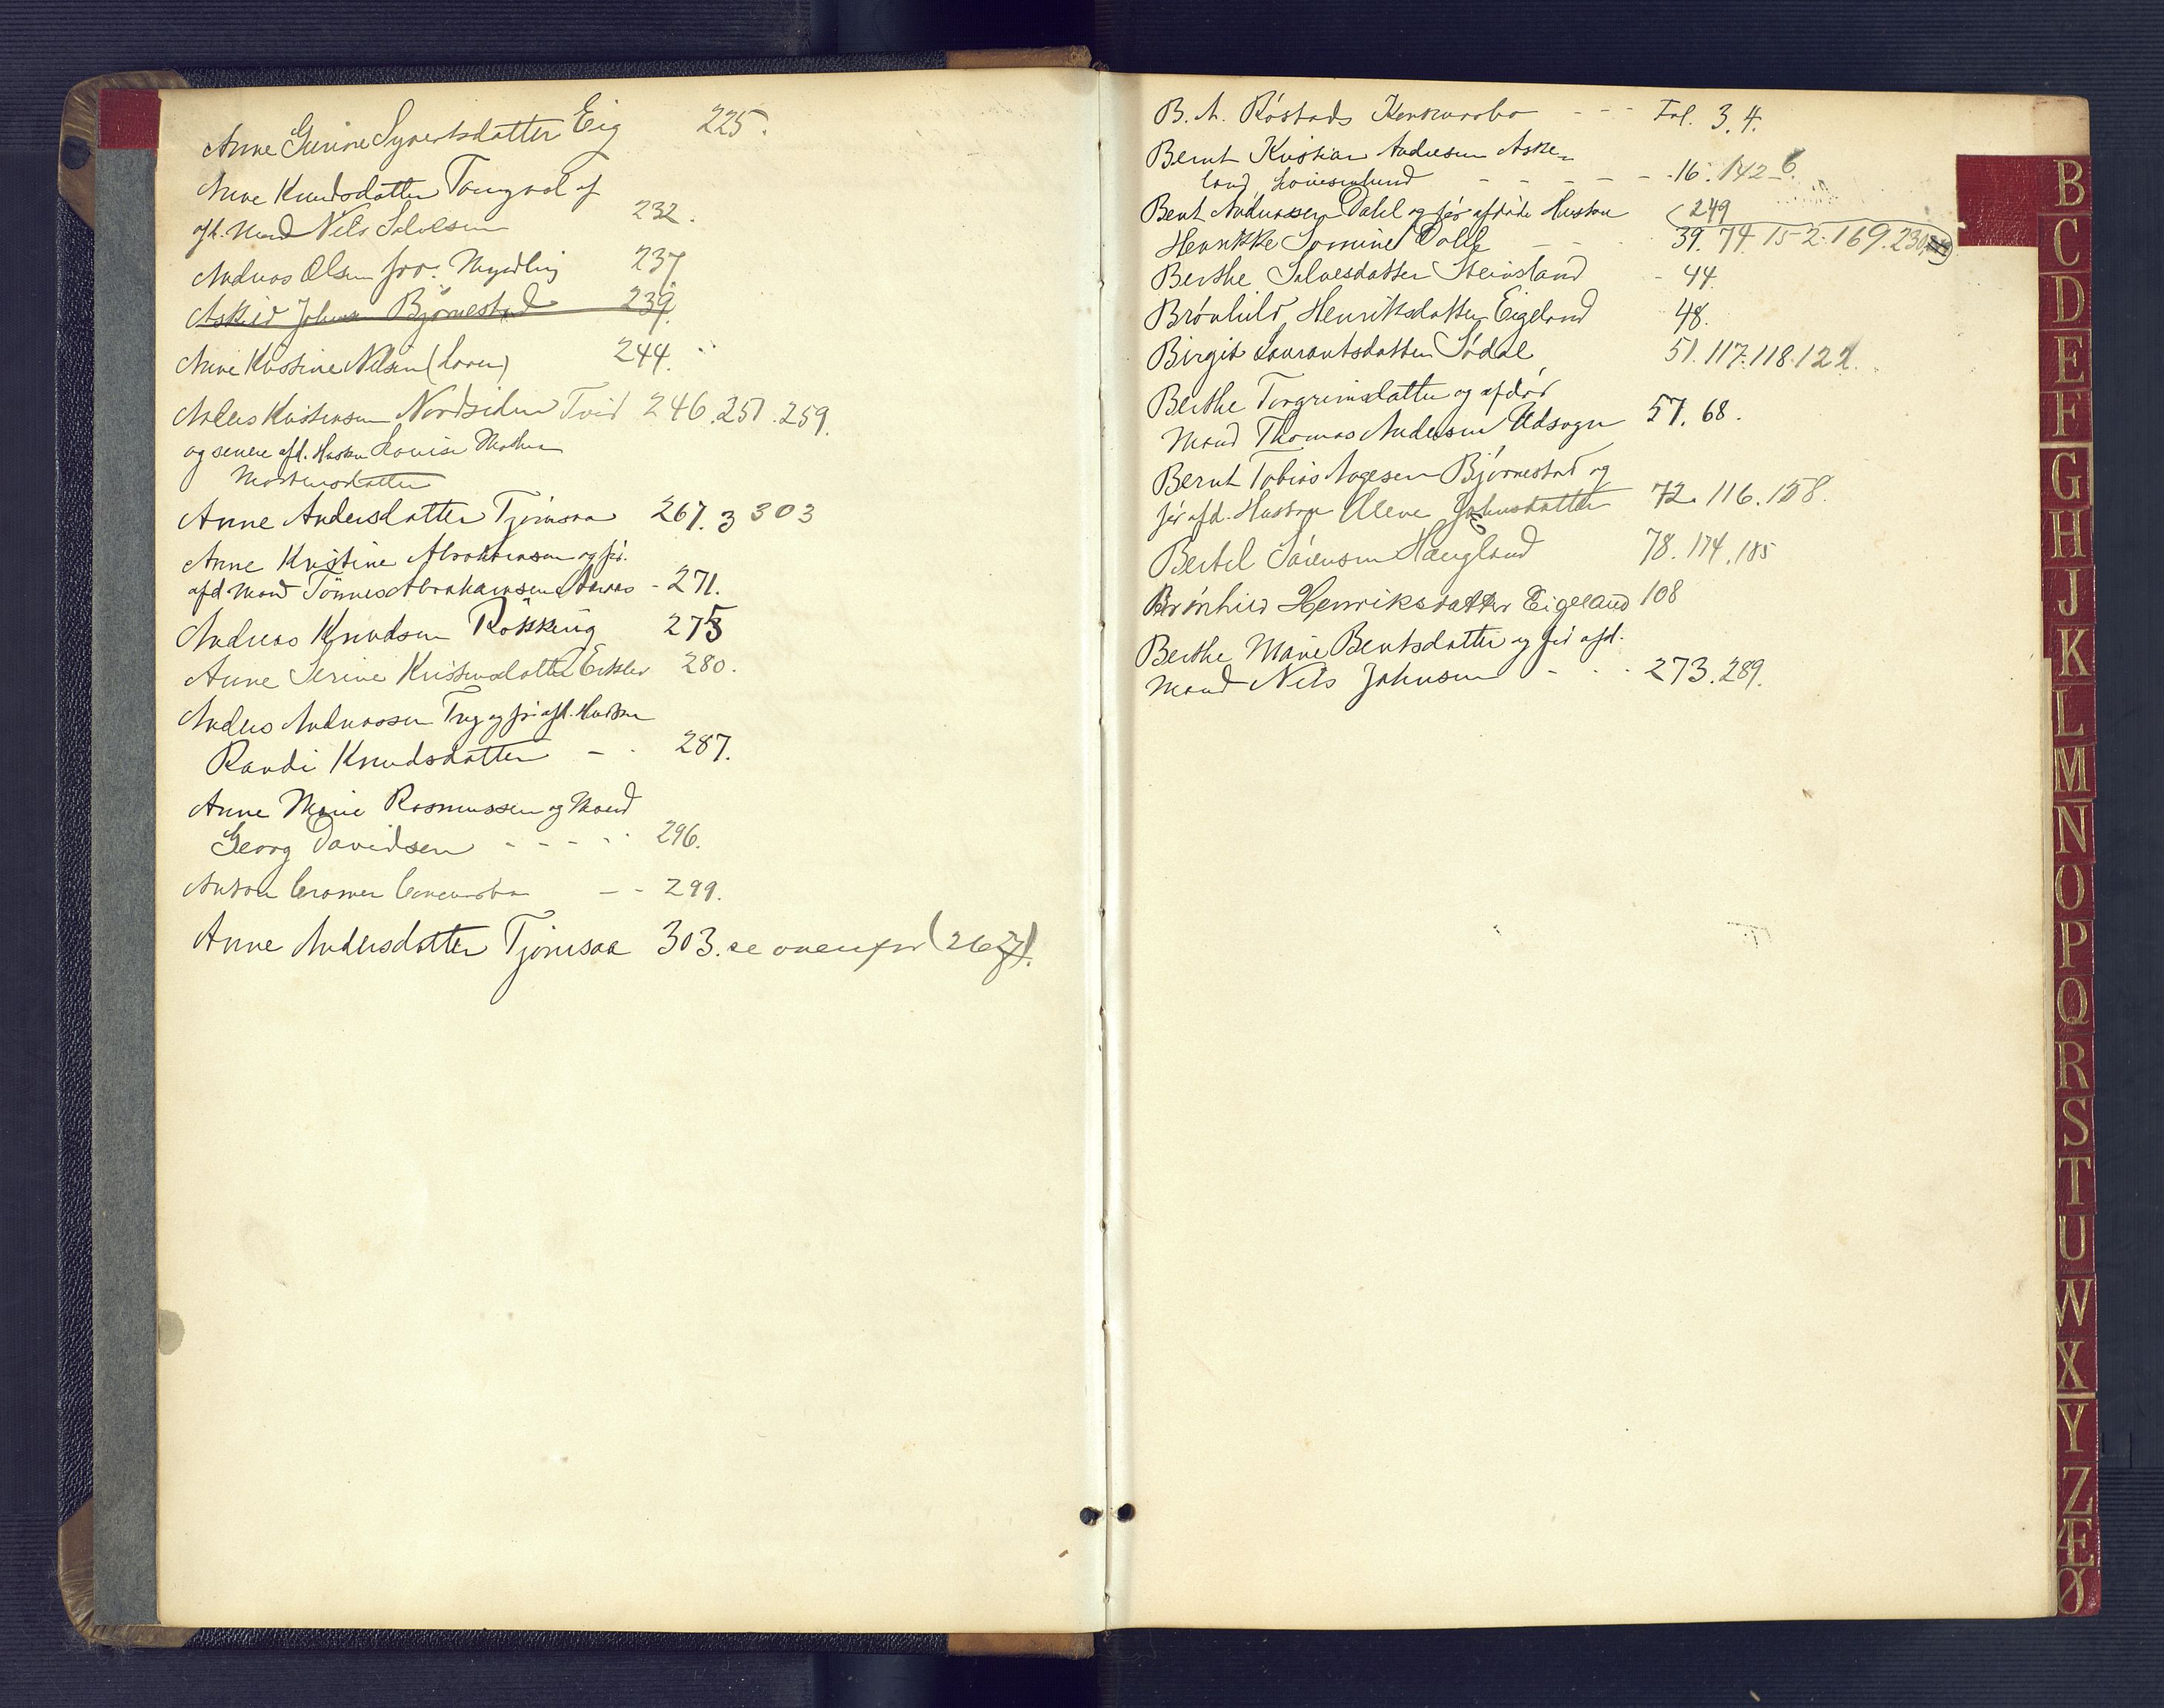 Anne Gurine Syvertsdatter Eig 225.
Anne Knudsdatter Tangval af
afd. Mand Nils Salvesen 232.
Andreas Olsen for. Myrdling 237
Askild Johnsen Bjørnestad 239.
Anne Kristine Nilsen (Loren) 244.
Anders Kristensen Nordsiden Tvid 246.251.259.
og senere afd. Hustru Lovise Mathea
Mortensdatter
Anne Andersdatter Tjomsaa 267. 3 303
Anne Kristine Abrahamsen og før
afd Mand Tönnes Abrahamsen - 271.
Andreas Knudsen Røkking 275
Anne Serine Kristensdatter Eikler 280.
Anders Andreassen Tryg og før afd. Hustru
Randi Knudsdatter - . 287.
Anne Marie Rasmussen og Mand
Georg Davidsen - - - . 296.
Anton Cramer Concursbo - - 299.
Anne Andersdatter Tjomsaa 303. se ovenfor (267).
B. A. Røstads Konkursbo - - - Fol. 3. 4.
Bernt Kristian Andresen Aske-
land, Lovisenlund - - - - - 16. 142 6.
Bent Andreassen Dahl og før afdøde Hustru (249
Henrikke Jomine Dahl - - - 39. 74. 152. 169. 230.
Berthe Salvesdatter Steinsland - 44.
Brønhild Henriksdatter Eigeland 48.
Birgit Laurantsdatter Södal 51. 117. 118. 122.
Berthe Torgrimsdatter og afdød
Mand Thomas Andersen Udsogn 57. 68.
Bernt Tobias Aagesen Bjørnestad og
før afd. Hustru Olene Johnsdatter 72. 116. 158.
Bertel Sørensen Haugland 78. 174. 185
Brønhild Henriksdatter Eigeland 108
Berthe Marie Bentsdatter og før afd.
Mand Nils Johnsen - . . 273. 289.
B
C
D
E
F
G
H
J
K
L
M
N
O
P
Q
R
S
T
U
W
X
Y
Z
Æ
Ø